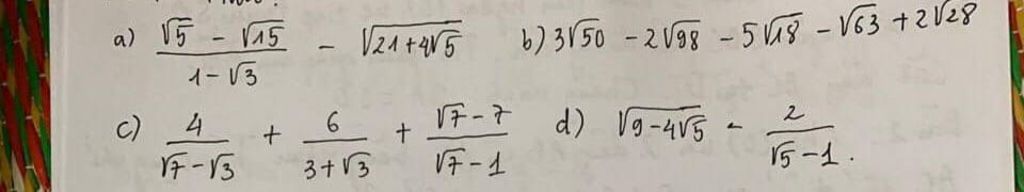 a) \frac{\sqrt{5} - \sqrt{15}}{1 - \sqrt{3}} - \sqrt{21 + 4\sqrt{5}} b) 3\sqrt{50} - 2\sqrt{98} - 5\sqrt{18} - \sqrt{63} + 2\sqrt{28}
c) \frac{4}{\sqrt{7} - \sqrt{3}} + \frac{6}{3 + \sqrt{3}} + \frac{\sqrt{7} - 7}{\sqrt{7} - 1} d) \sqrt{9 - 4\sqrt{5}} - \frac{2}{\sqrt{5} - 1}.